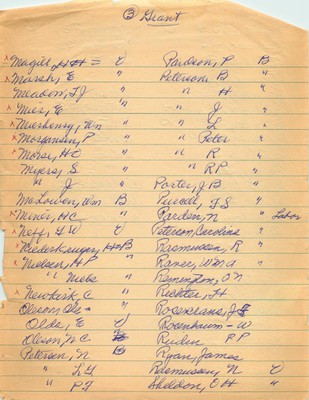 ③ Grant
x Magill, H H = E Paulson, P B
x Marsh, E " Petersons B "
Meadon, F J " " H "
x Mier, E " " J "
x Mierhenry, Wm " " L "
x Morganson, P " " Peter "
x Morse, H C " " R "
Myers, S " " R P "
" J Porter, J B "
McLowen, Wm B Purcell, F S "
x Miner, H C " Parden, N " Labor
x Neff, L W E Peterson, Caroline "
x Niederkruger, H B Rasmussen, R "
x Nielsen, H P " Raner, Wm A "
" Niebs " Remington, O N
x Newkirk, C " Richter, H
Oleson, Ole " Rosencrans, J F
Olds, E E Rosenbaum - W
Olson, N C " Ruden P P
Petersen, N B Ryan, James
" L F Rasmussen, N E
" P F Sheldon, E H "